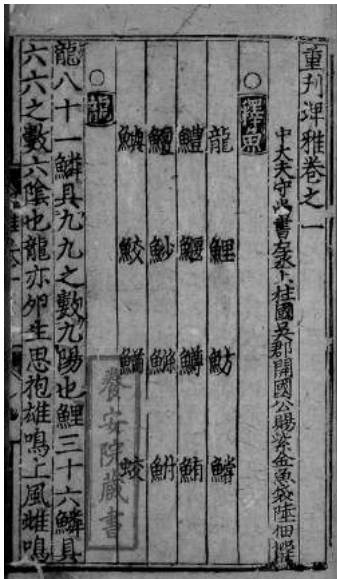 重刊埤雅卷之一
中大夫守尚書左丞上柱國吳郡開國公賜紫金魚袋陸佃撰
○釋魚
龍 鯉 魴
鱧 鰋 鱒 鮪
魦 鮒
鮫 蛟
○龍
龍八十一鱗具九九之數九陽也鯉三十六鱗具
六六之數六陰也龍亦卵生思抱雄鳴上風雌鳴
養安院藏書